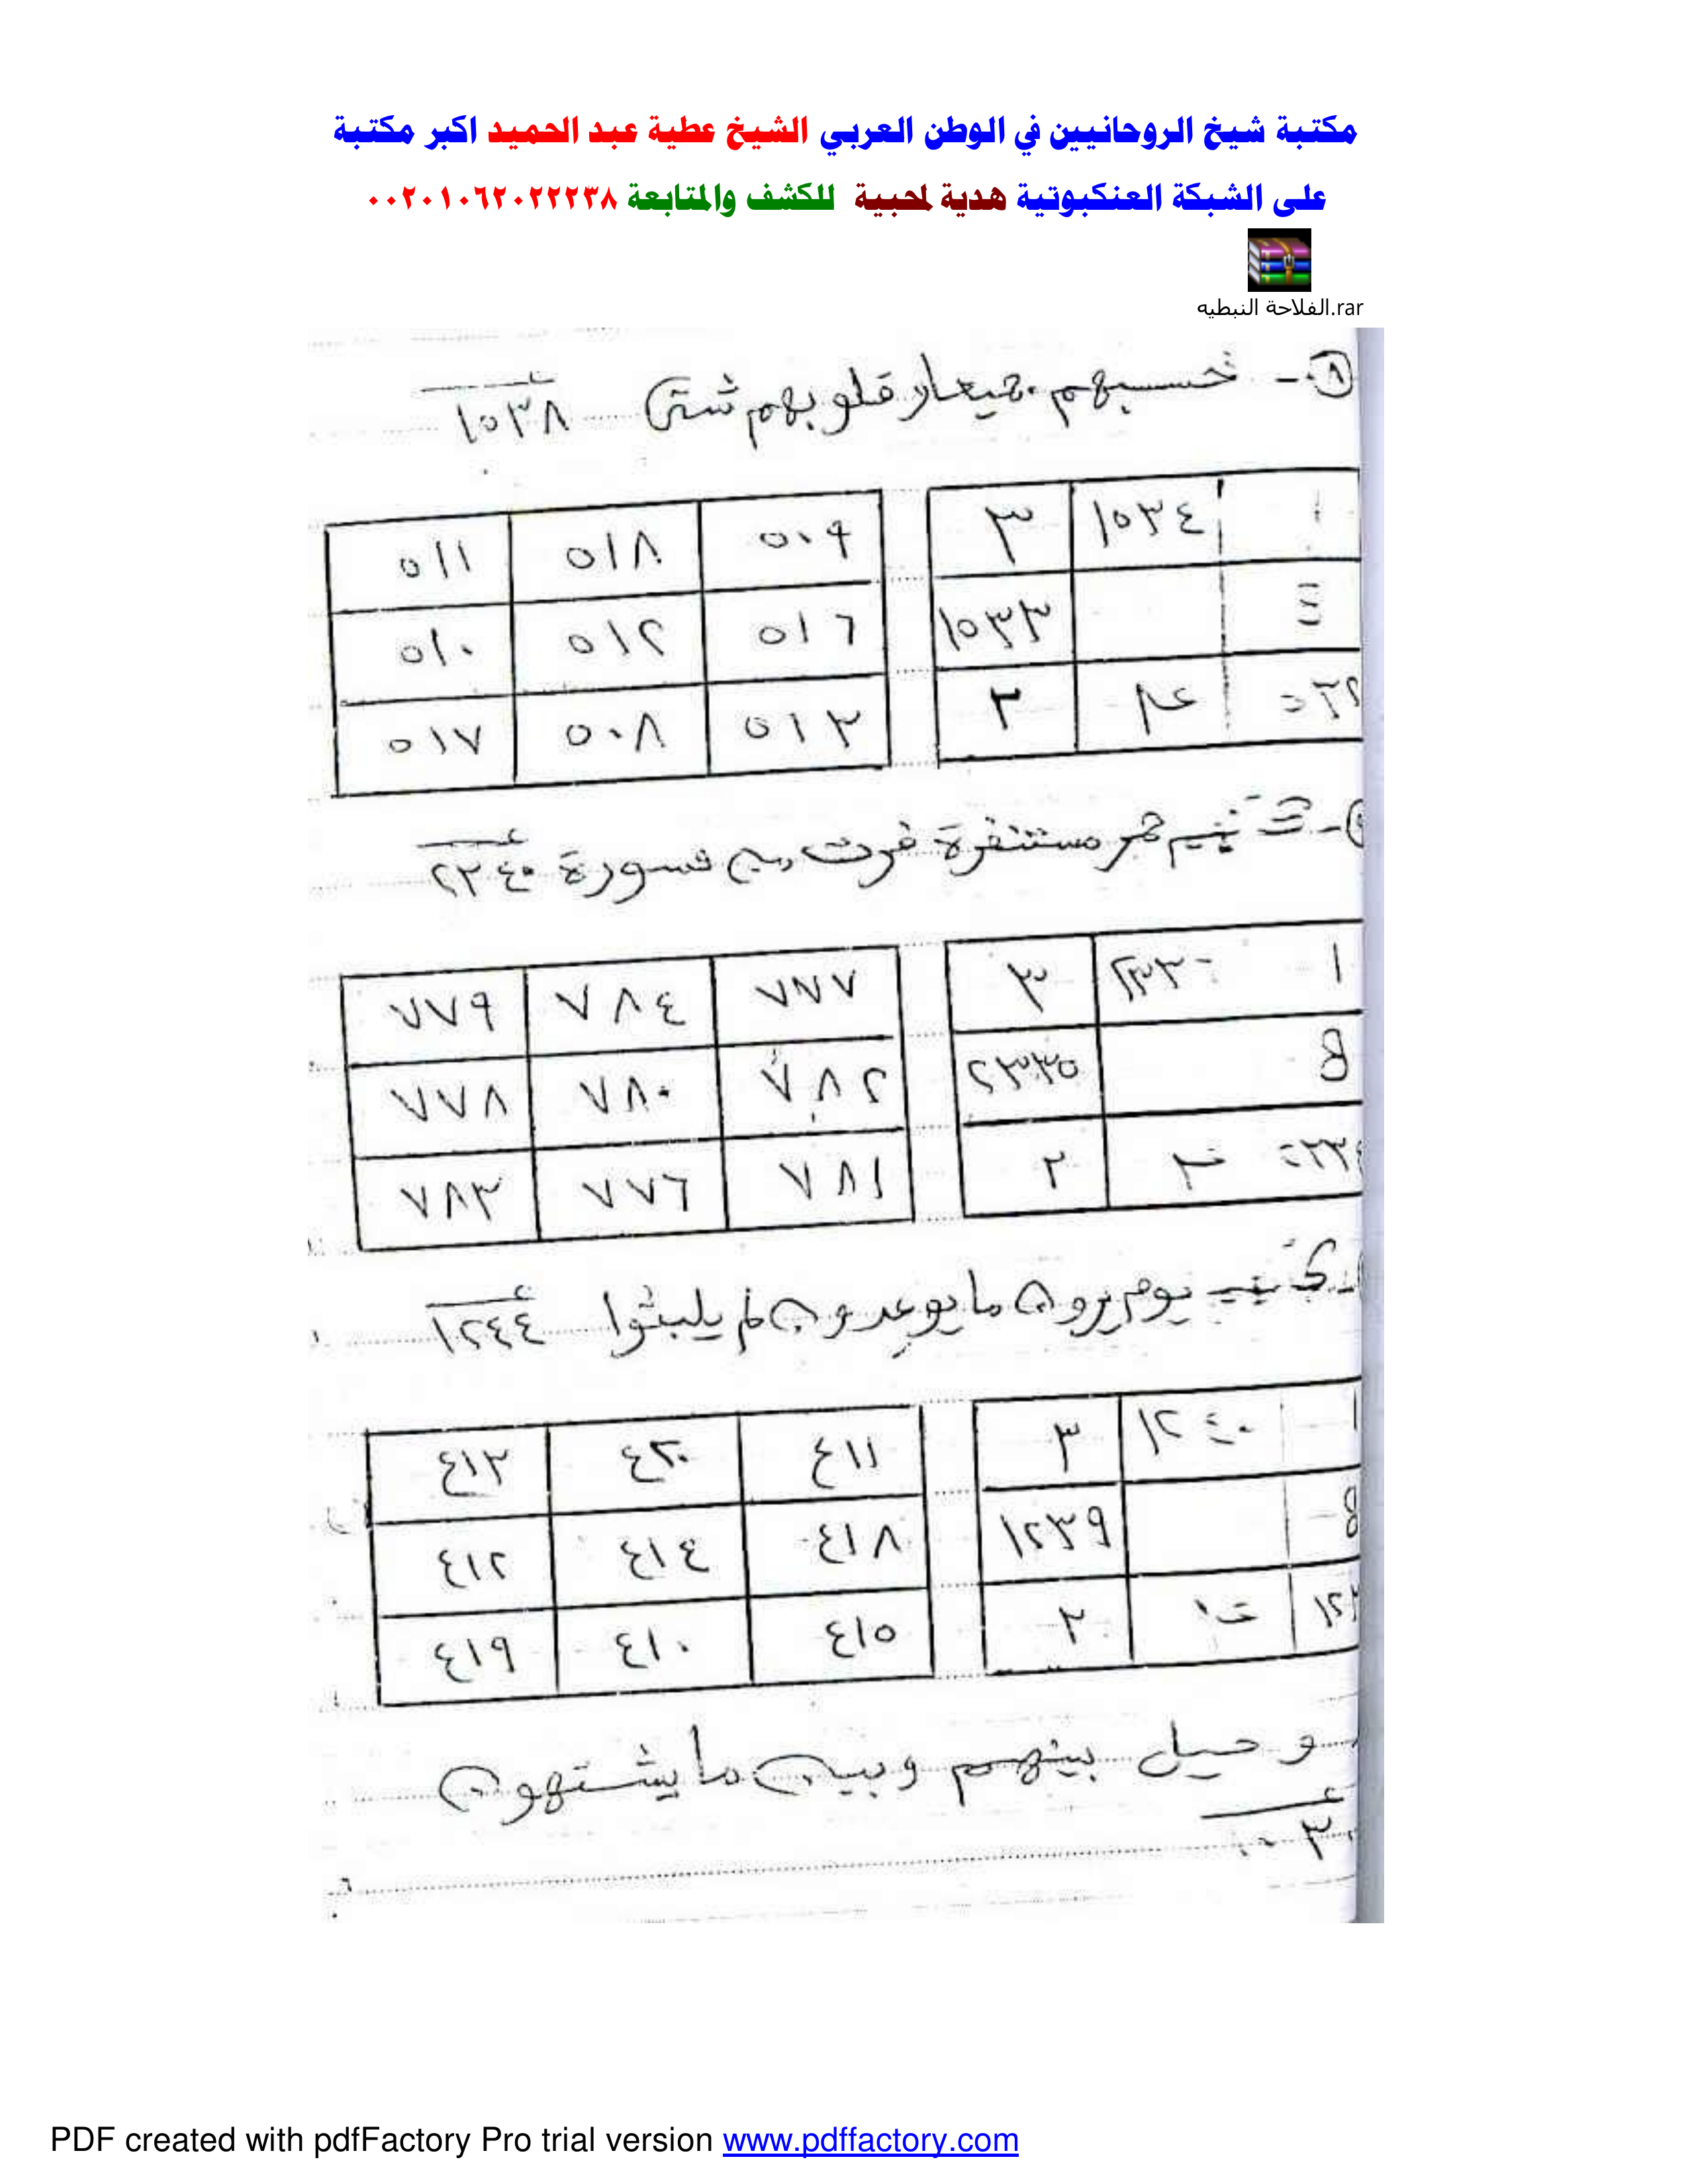 مكتبة شيخ الروحانيين في الوطن العربي الشيخ عطية عبد الحميد اكبر مكتبة
على الشبكة العنكبوتية هدية لمحبية للكشف والمتابعة ٠٠٢٠١٠٦٢٠٢٢٢٣٨
الفلاحة النبطيه.rar
٨ - تحسبهم جميعا وقلوبهم شتى ١٥٣٨
١ ١٥٣٤ ٣
١٥٣٣
٢
٥٠٩ ٥١٨ ٥١١
٥١٦ ٥١٢ ٥١٠
٥١٣ ٥٠٨ ٥١٧
حمر مستنفرة فرت من قسورة ٢٣٤٠
١ ٣
٢٣٣٥
٢
٧٧٧ ٧٨٤ ٧٧٩
٧٨٢ ٧٨٠ ٧٧٨
٧٨١ ٧٧٦ ٧٨٣
يوم يرون ما يوعدون لم يلبثوا ١٢٤٤
١ ١٢٤٠ ٣
١٢٣٩
٢
٤١١ ٤٢٠ ٤١٣
٤١٨ ٤١٤ ٤١٢
٤١٥ ٤١٠ ٤١٩
وحيل بينهم وبين ما يشتهون
PDF created with pdfFactory Pro trial version www.pdffactory.com